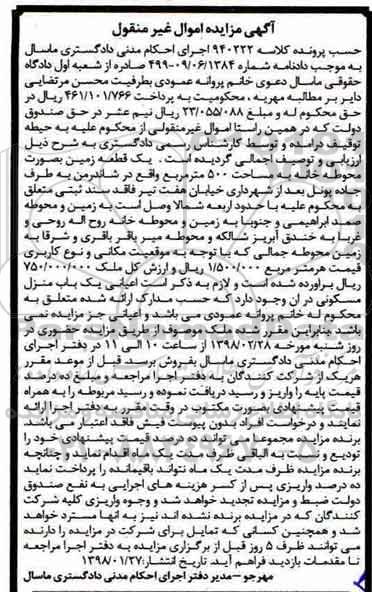 آگهی مزایده اموال غیر منقول
حسب پرونده کلاسه ۹۴۰۲۲۲ اجرای احکام مدنی دادگستری ماسال
به موجب دادنامه شماره ۴۹۹-۰۹/۰۶/۱۳۸۴ صادره از شعبه اول دادگاه
حقوقی ماسال دعوی خانم پروانه عمودی بطرفیت محسن مرتضایی
دایر بر مطالبه مهریه ، محکومیت به پرداخت ۴۶۱/۱۰۱/۷۶۶ ریال در
حق محکوم له و مبلغ ۲۳/۰۵۵/۰۸۸ ریال نیم عشر در حق صندوق
دولت که در همین راستا اموال غیرمنقولی از محکوم علیه به حیطه
توقیف درآمده و توسط کارشناس رسمی دادگستری به شرح ذیل
ارزیابی و توصیف اجمالی گردیده است . یک قطعه زمین بصورت
محوطه خانه به مساحت ۵۰۰ مترمربع واقع در شاندرمن به طرف
جاده پونل بعد از شهرداری خیابان هفت تیر فاقد سند ثبتی متعلق
به محکوم علیه با حدود اربعه شمالا وصل است به زمین و محوطه
اسد ابراهیمی و جنوبا به زمین و محوطه خانه روح اله روحی و
غربا به خندق آبریز شالکه و محوطه میر باقر باقری و شرقا به
زمین محوطه جمالی که با توجه به موقعیت مکانی و نوع کاربری
قیمت هرمتر مربع ۱/۵۰۰/۰۰۰ ریال و ارزش کل ملک ۷۵۰/۰۰۰/۰۰۰
ریال براورده شده است و لازم به ذکر است اعیانی یک باب منزل
مسکونی در ان وجود دارد که حسب مدارک ارائه شده متعلق به
محکوم له خانم پروانه عمودی می باشد و اعیانی جز مزایده نمی
باشد بنابراین مقرر گردید ملک موصوف از طریق مزایده حضوری در
روز شنبه مورخه ۱۳۹۸/۰۲/۲۸ از ساعت ۱۰ الی ۱۱ در دفتر اجرای
احکام مدنی دادگستری ماسال بفروش برسد. قبل از موعد مقرر
هریک از شرکت کنندگان به دفتر اجرا مراجعه و مبلغ ده درصد
قیمت پایه را واریز و رسید دریافت نموده و رسید مربوطه را به همراه
قیمت پیشنهادی بصورت مکتوب در وقت مقرر به دفتر اجرا ارائه
نمایند و درخواست افراد بدون پیوست فیش فاقد اعتبار می باشد
برنده مزایده مجموعا می تواند ده درصد قیمت پیشنهادی خود را
تودیع و نسبت به الباقی ظرف مدت یک ماه اقدام نماید و چنانچه
برنده مزایده ظرف مدت یک ماه نتواند باقیمانده را پرداخت نماید
ده درصد واریزی پس از کسر هزینه های اجرایی به نفع صندوق
دولت ضبط و مزایده تجدید خواهد شد و وجوه واریزی کلیه شرکت
کنندگان که در مزایده برنده نشده اند نیز به آنها مسترد خواهد
شد و همچنین کسانی که تمایل برای شرکت در مزایده را دارند
می توانند ظرف ۵ روز قبل از برگزاری مزایده به دفتر اجرا مراجعه
تا مقدمات بازدید فراهم آید. تاریخ انتشار: ۱۳۹۸/۰۱/۲۷
مهرجو - مدیر دفتر اجرای احکام مدنی دادگستری ماسال